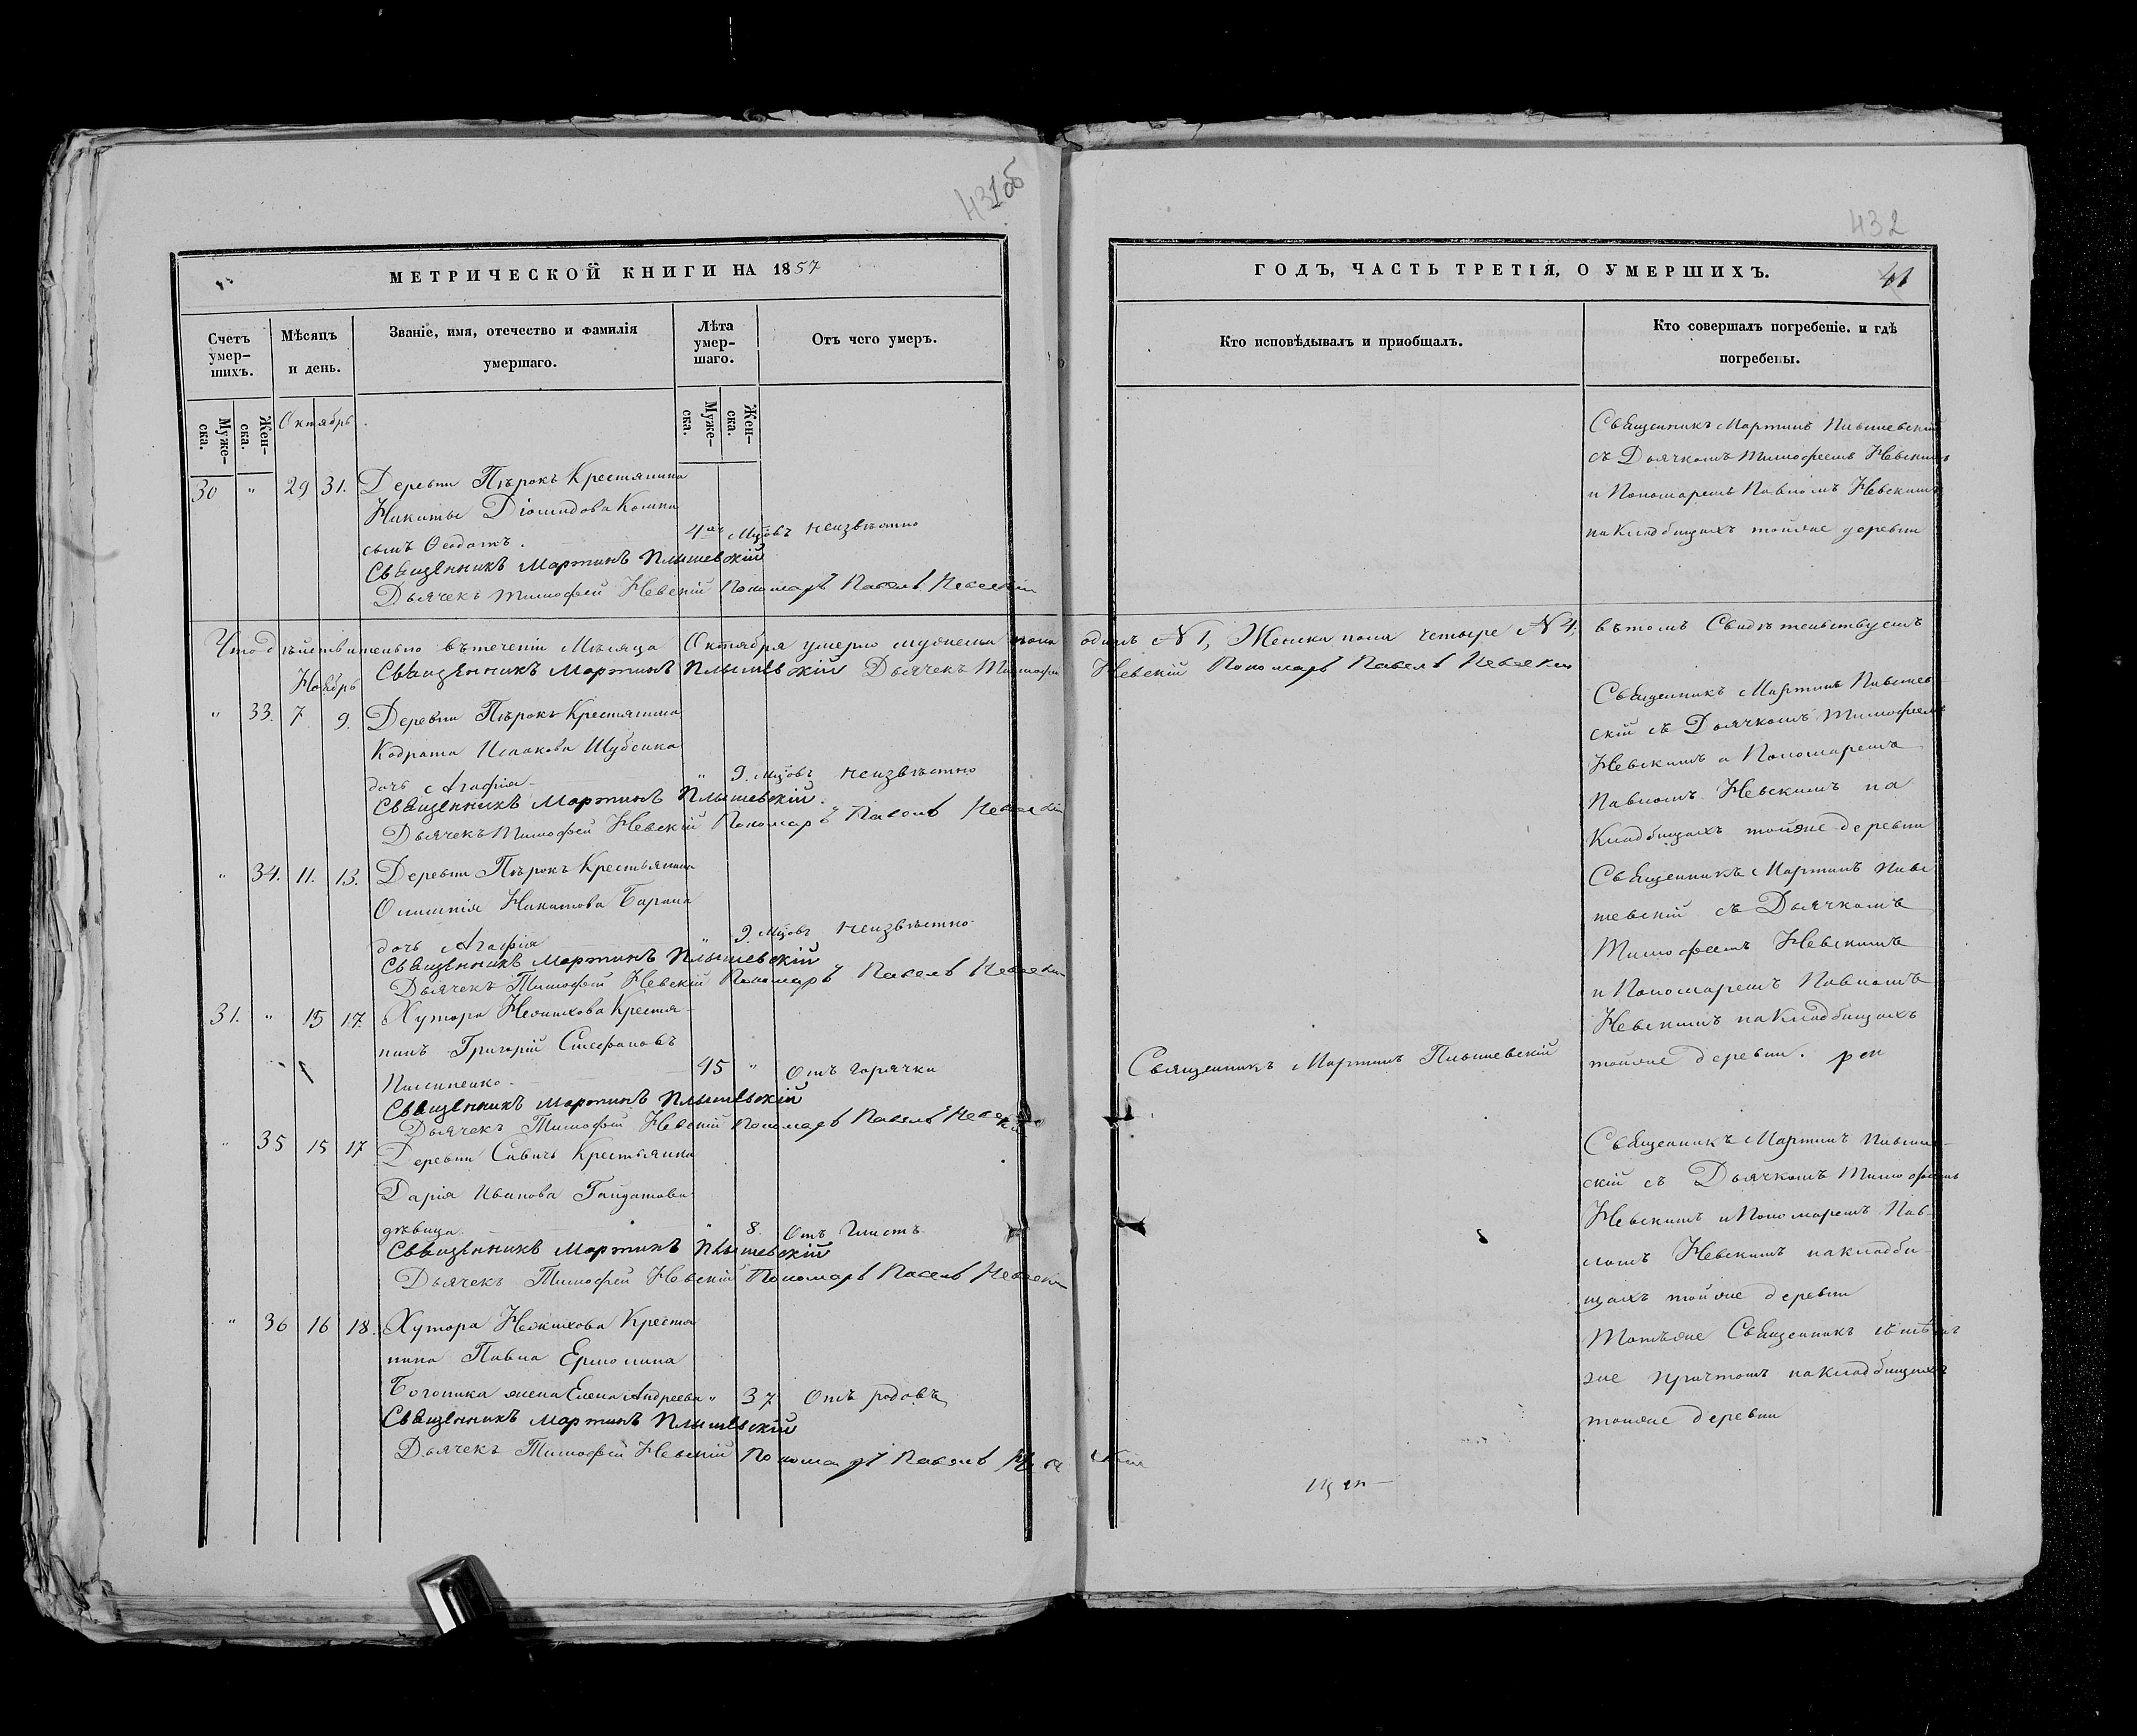 431об
МЕТРИЧЕСКОЙ КНИГИ НА 1857
Счетъ умер-шихъ.
Мѣсяцъ и день.
Званіе, имя, отечество и фамилія умершаго.
Лѣта умер-шаго.
Отъ чего умеръ.
Муже-ска.
Жен-ска.
Октябрь
Муже-ска.
Жен-ска.
30 " 29 31. Деревни Пѣрокъ Крестянина
Никиты Діомидова
сынъ 4 Мцовъ неизвѣстно
Священникъ Мартинъ Плышевскій
Дьячекъ Тимофей Невскій Пономарь Павелъ Невскій
Что дѣйствительно втеченіи Мѣсяца Октября умерло мужеска пола
Священникъ Мартинъ Плышевскій Дьячекъ Тимофей
Ноябрь
" 33. 7 9. Деревни Пѣрокъ Крестянина
Кодрата Исаакова Шубенка
дочь Агафія " 9. Мцовъ неизвѣстно
Священникъ Мартинъ Плышевскій.
Дьячекъ Тимофей Невскій Пономарь Павелъ Невскій
" 34. 11. 13. Деревни Пѣрокъ Крестьянина
Никитова
дочь Агафія " 9. Мцовъ неизвѣстно
Священникъ Мартинъ Плышевскій
Дьячекъ Тимофей Невскій Пономарь Павелъ Невскій
31. " 15 17. Хутора Крестя-
нинъ Григорій Стефановъ
45 " Отъ горячки
Священникъ Мартинъ Плышевскій
Дьячекъ Тимофей Невскій Пономарь Павелъ Невскій
" 35 15 17 Деревни Крестьянка
Дарія Иванова
дѣвица " 8. Отъ глистъ
Священникъ Мартинъ Плышевскій
Дьячекъ Тимофей Невскій Пономарь Павелъ Невскій
" 36 16 18. Хутора Крестя
нина Павла
жена Елена Андреева " 37 Отъ родовъ
Священникъ Мартинъ Плышевскій
Дьячекъ Тимофей Невскій Пономарь Павелъ Невскій
432
ГОДЪ, ЧАСТЬ ТРЕТІЯ, О УМЕРШИХЪ.
41
Кто исповѣдывалъ и пріобщалъ.
Кто совершалъ погребеніе. и гдѣ погребены.
Священникъ Мартинъ Плышевскій
съ Дьячкомъ Тимофеемъ Невскимъ
и Пономаремъ Павломъ Невскимъ
на Кладбищахъ тойже деревни
одинъ №1, Женска пола четыре №4, въ томъ Свидѣтельствуемъ
Невскій Пономарь Павелъ Невскій
Священникъ Мартинъ Плышев
скій съ Дьячкомъ Тимофеемъ
Невскимъ и Пономаремъ
Павломъ Невскимъ на
Кладбищахъ тойже деревни
Священникъ Мартинъ Плы
шевскій съ Дьячкомъ
Тимофеемъ Невскимъ
и Пономаремъ Павломъ
Невскимъ на Кладбищахъ
тойже деревни.
Священникъ Мартинъ Плышевскій
Священникъ Мартинъ
скій съ Дьячкомъ Тимофеемъ
Невскимъ и Пономаремъ Пав-
ломъ Невскимъ на кладби-
щахъ тойже деревни
Тотъже Священникъ
же причтомъ на Кладбищахъ
тойже деревни